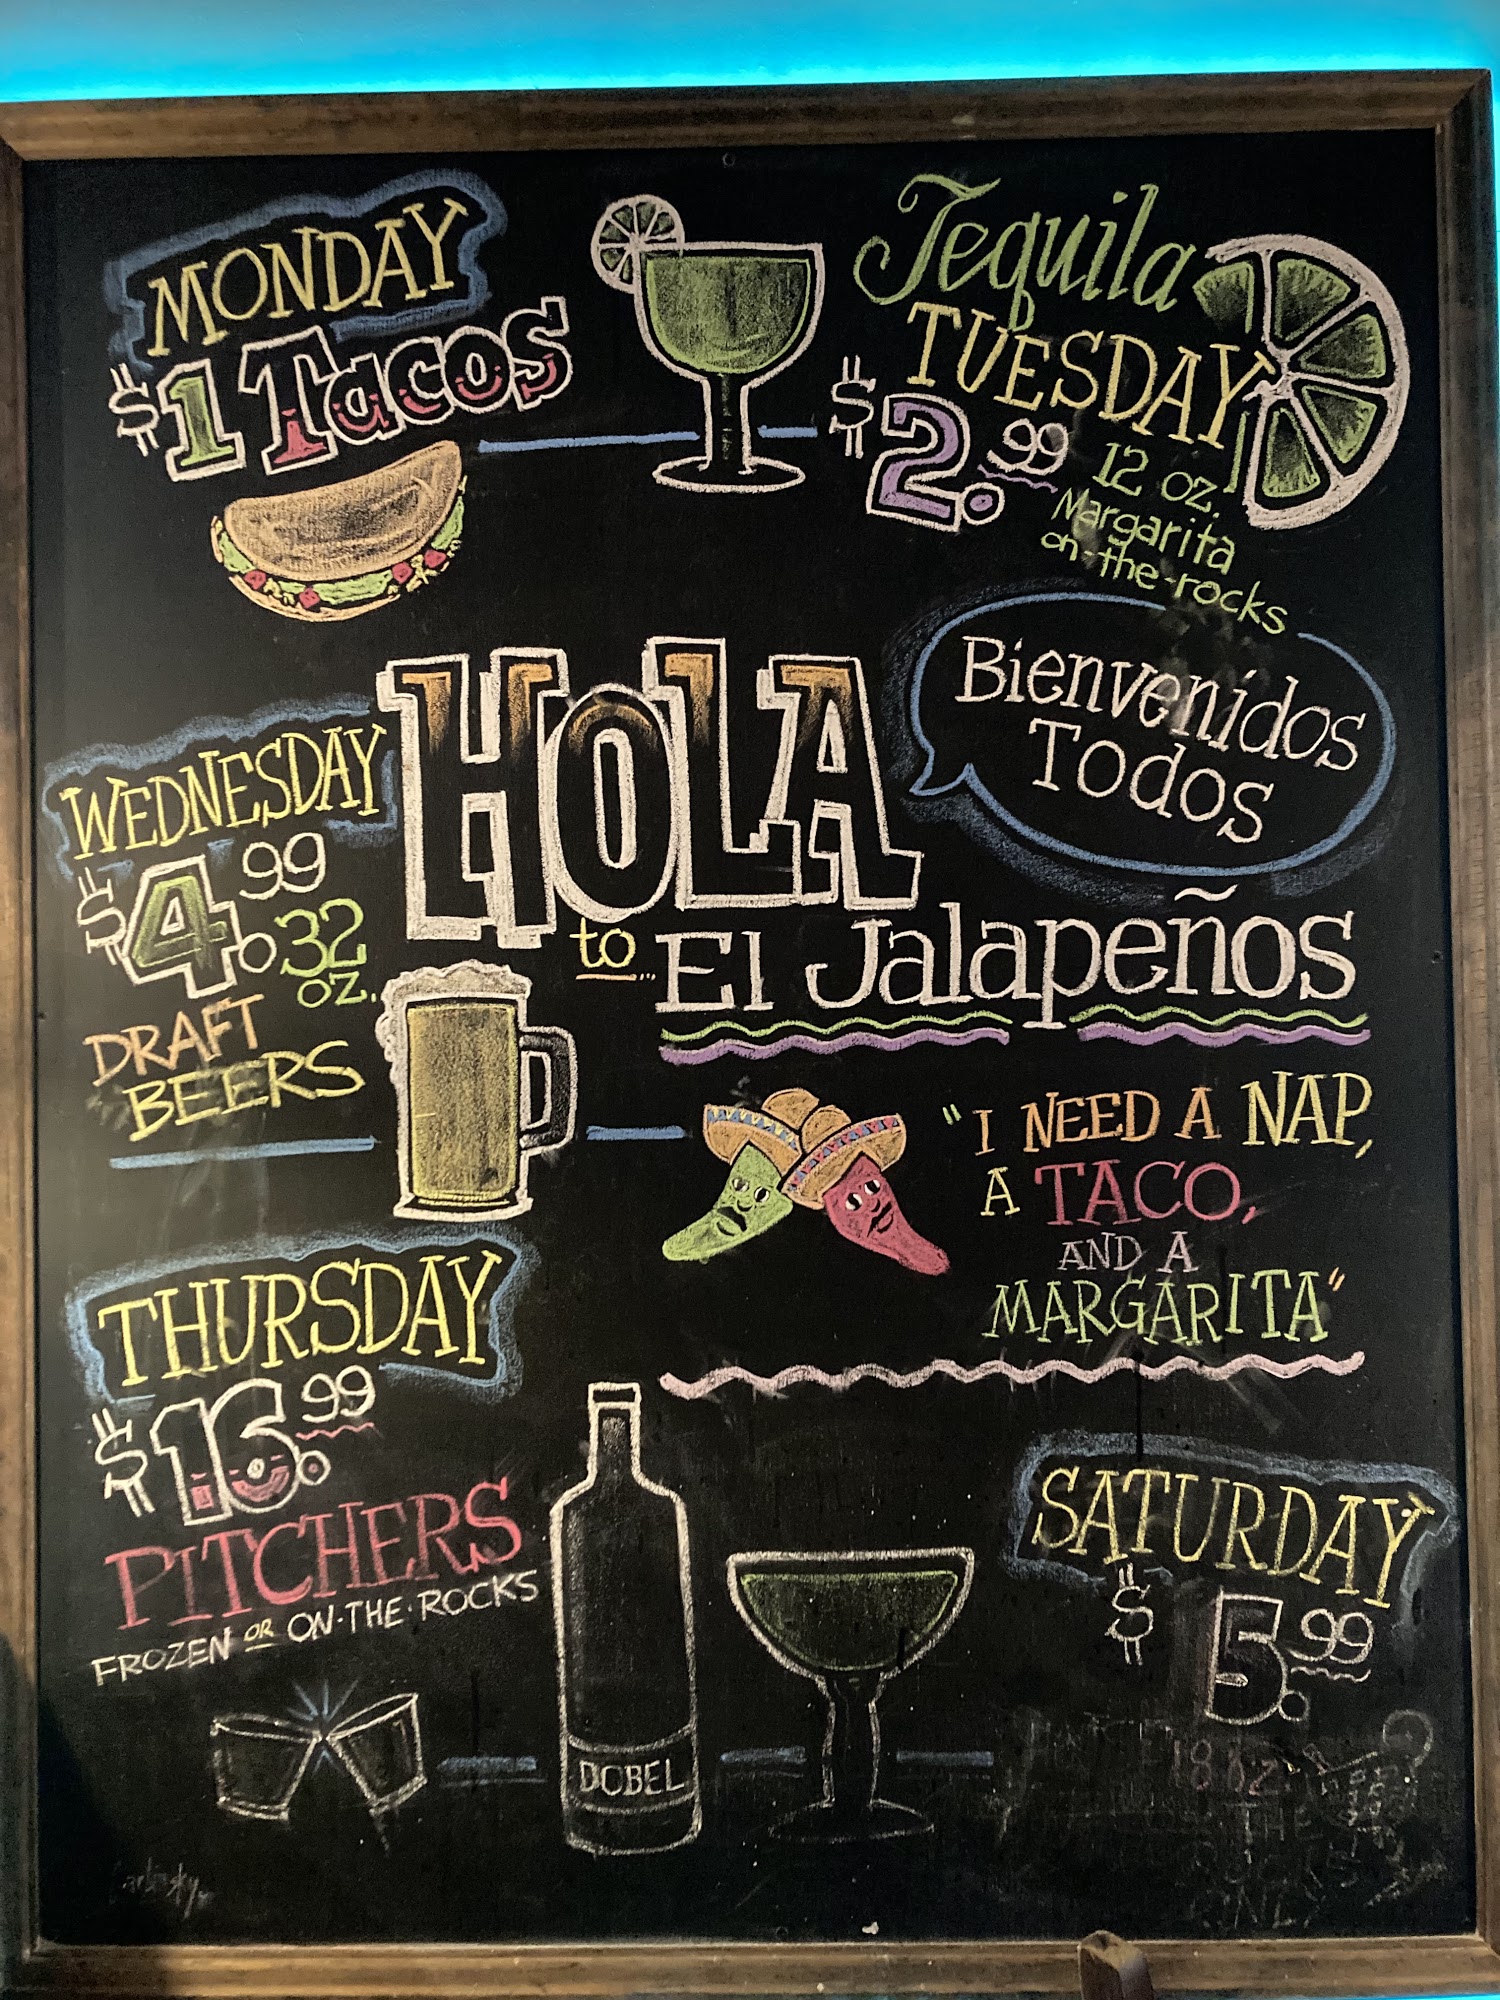 MONDAY
$1 Tacos
Tequila
TUESDAY
$2.99
12 oz.
Margarita
on-the-rocks
HOLA
to... El Jalapeños
Bienvenidos
Todos
WEDNESDAY
$4.99
32
oz.
DRAFT
BEERS
"I NEED A NAP,
A TACO,
AND A
MARGARITA"
THURSDAY
$16.99
PITCHERS
FROZEN OR ON-THE-ROCKS
DOBEL
SATURDAY
$5.99